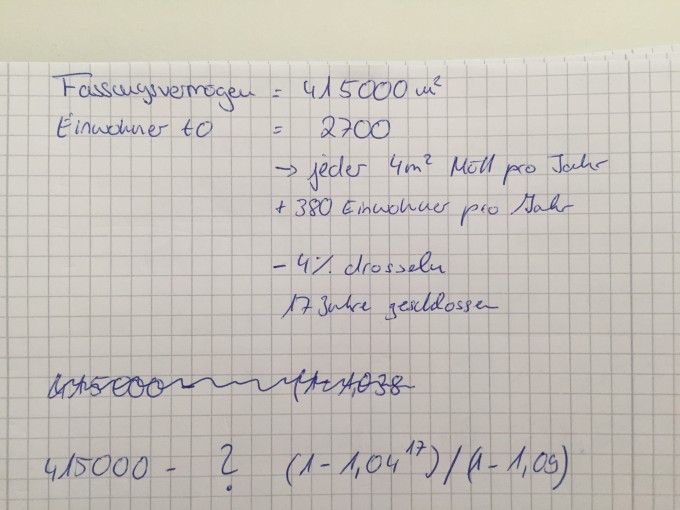 Fassungsvermögen = 415000 m²
Einwohner t0 = 2700
→ jeder 4m² Müll pro Jahr
+ 380 Einwohner pro Jahr
- 4% drosseln
17 Jahre geschlossen
415000 (1-1,038
415000 - ? (1-1,04¹⁷)/(1-1,09)